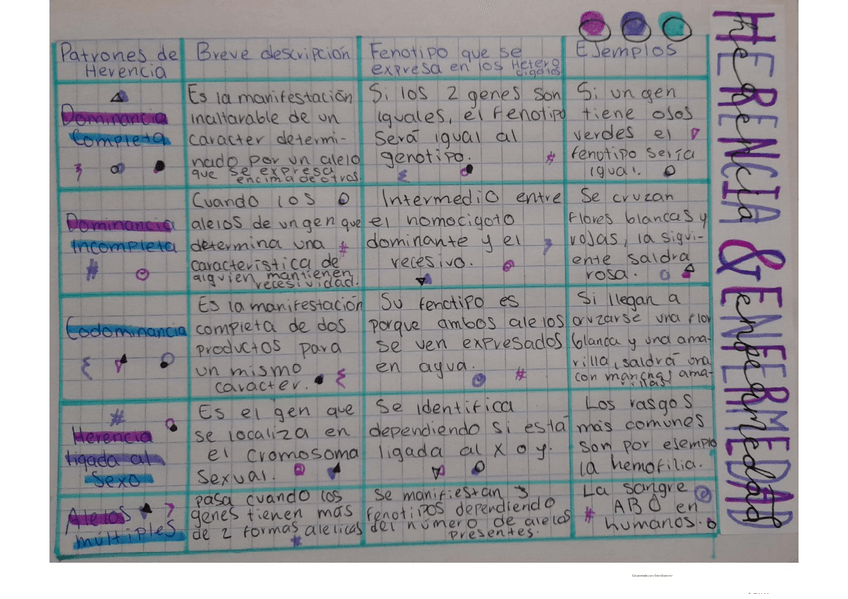 Patrones de
Herencia
Breve descripción
Fenotipo que se
expresa en los Heterocigotos
Ejemplos
HERENCIA & ENFERMEDAD
herencia & enfermedad
Dominancia
Completa
Es la manifestación
inallarable de un
caracter determi-
nado por un alelo
que se expresa
encima de otras.
Si los 2 genes son
iguales, el fenotipo
será igual al
genotipo.
Si un gen
tiene ojos
verdes el
fenotipo sería
igual.
Dominancia
Incompleta
Cuando los
alelos de un gen que
determina una
característica de
alguien mantienen
recesividad.
Intermedio entre
el homocigoto
dominante y el
recesivo.
Se cruzan
flores blancas y
rojas, la sigui-
ente saldrá
rosa.
Codominancia
Es la manifestación
completa de dos
productos para
un mismo
caracter.
Su fenotipo es
porque ambos alelos
se ven expresados
en
Si llegan a
cruzarse una flor
blanca y una ama-
rilla, saldrá una
con manchas ama-
rillas
Herencia
ligada al
Sexo
Es el gen que
se localiza en
el cromosoma
sexual.
Se identifica
dependiendo si está
ligada al X o y.
Los rasgos
más comunes
son por ejemplo
la hemofilia.
Alelos
múltiples
pasa cuando los
genes tienen más
de 2 formas alelicas
Se manifiestan 3
fenotipos dependiendo
del número de alelos
presentes.
La sangre
ABO en
humanos.